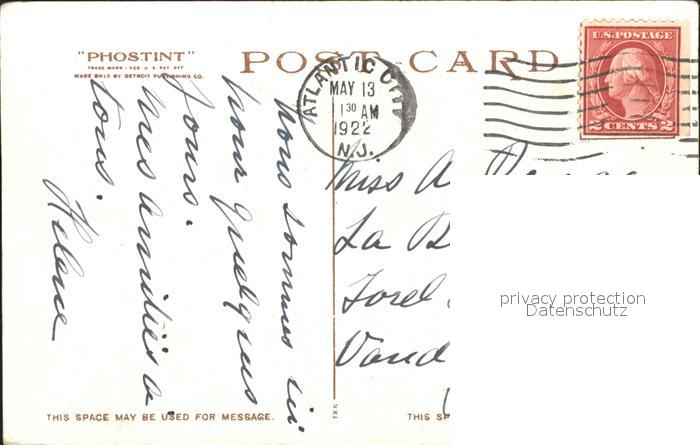 "PHOSTINT"
TRADE MARK - REG U.S. PAT. OFF
MADE ONLY BY DETROIT PUBLISHING CO.
POST CARD
ATLANTIC CITY
MAY 13
1 30 AM
1922
N.J.
U.S. POSTAGE
2 CENTS 2
nous sommes ici
pour quelques
jours.
mes amitiés à
tous.
Helene
Miss A
La B
Forel
Vaud
privacy protection
Datenschutz
THIS SPACE MAY BE USED FOR MESSAGE.
THIS SP